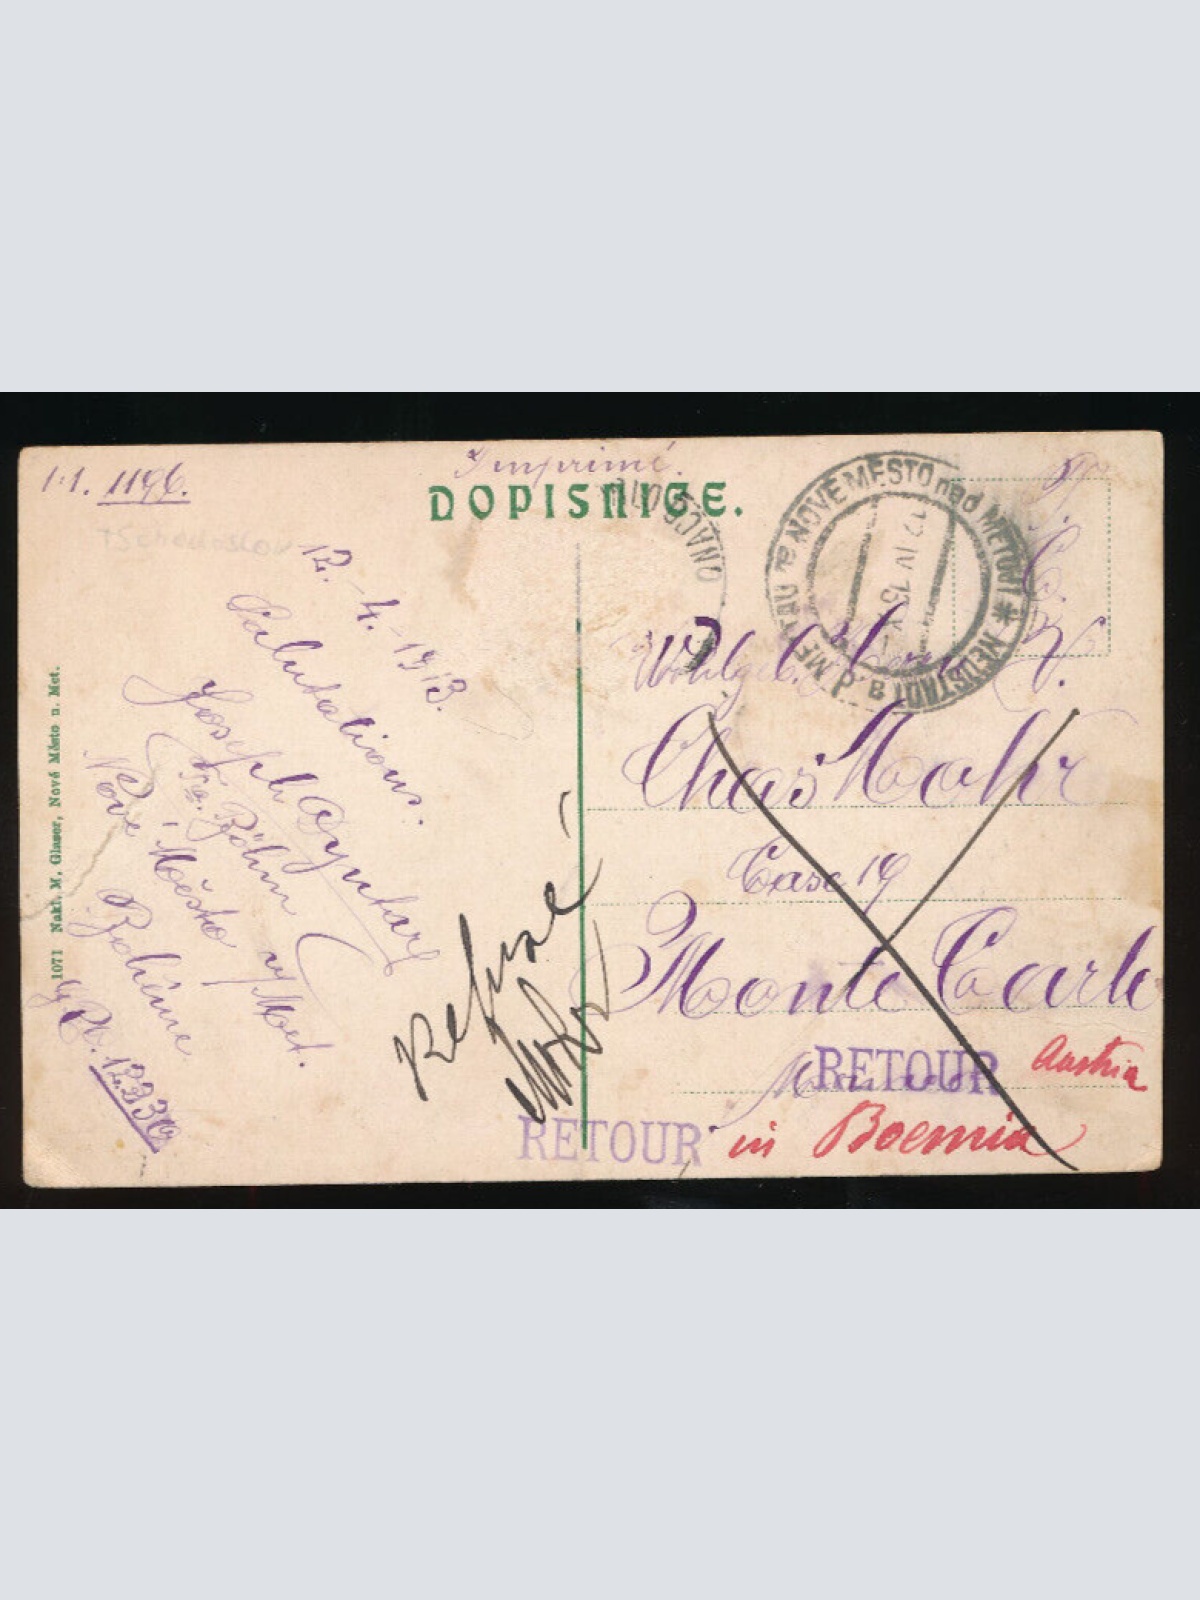 1.1. 1196.
Imprimé.
DOPISNICE.
12.-4.-1913.
Salutations.
Joseph
Fa. Böhm
Nové Město n/Met.
Bohême
12236
1071 Nakl. M. Glaser, Nové Město n. Met.
NOVÉ MĚSTO nad METUJÍ * NEUSTADT a. d. METTAU
12 IV 13
T.
C.
V.
Wohlgeb. Herrn
Chas Mohr
Case 19
Monte Carlo
Monaco
Refusé
RETOUR
RETOUR
Austria
in Boemia